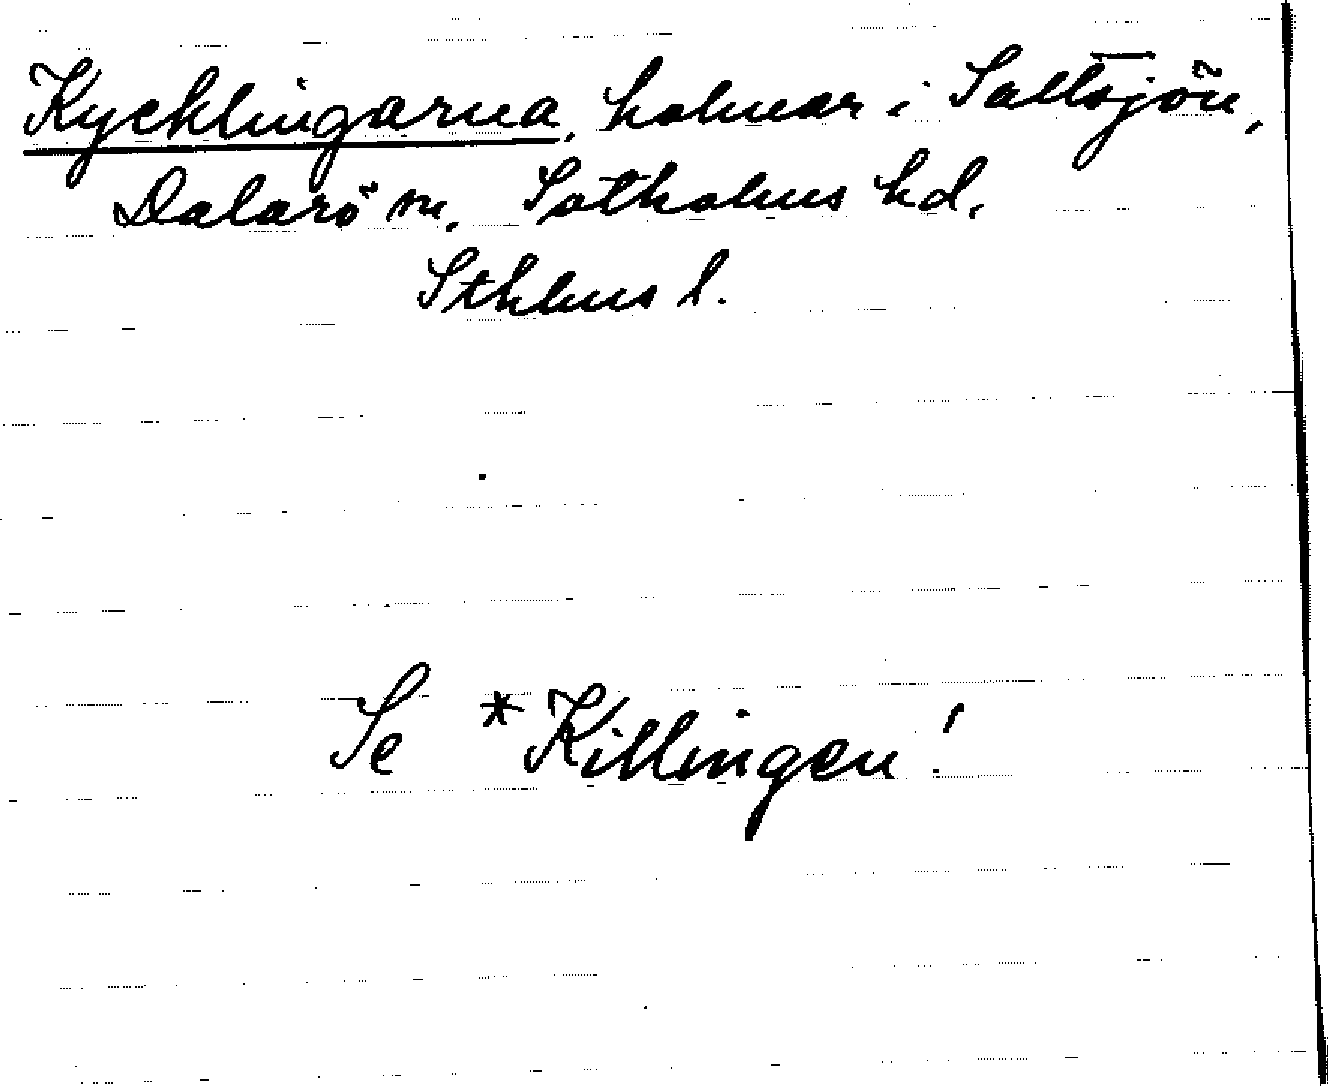 Kycklingarna, holmar i Saltsjön,
Dalarö sn, Sotholms hd.
Sthlms l.
Se *Killingen!